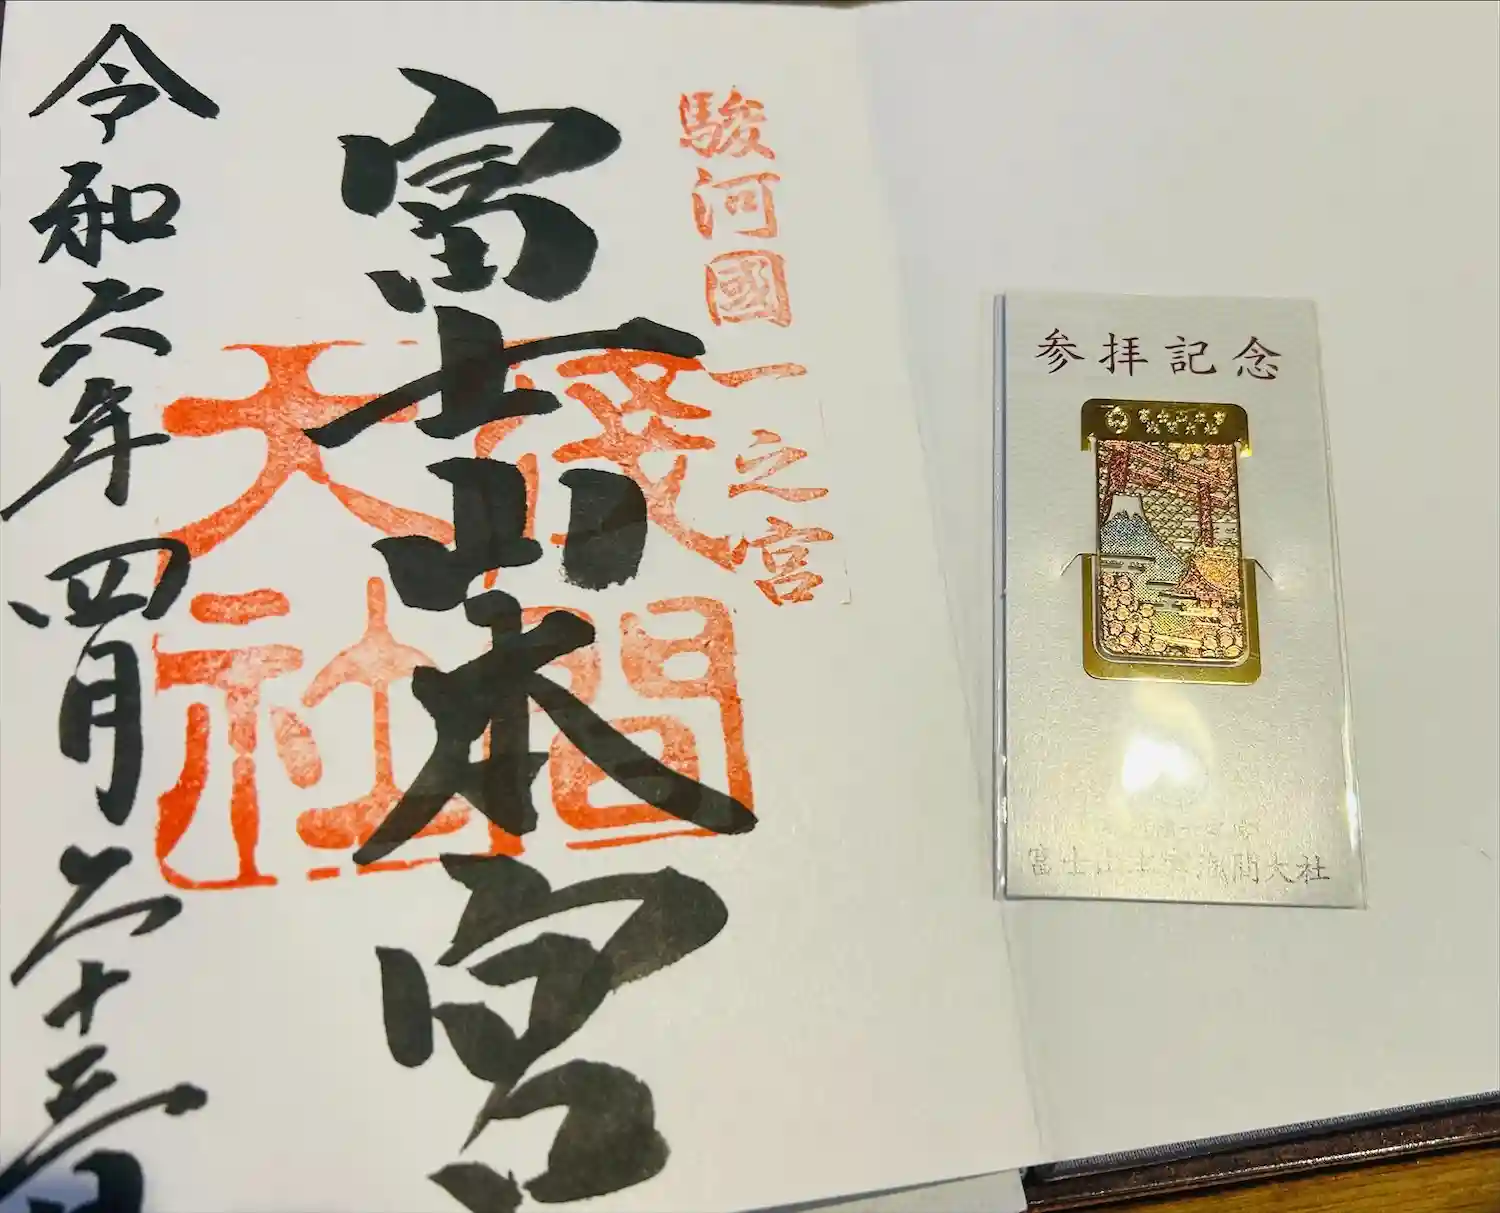 駿河國一之宮
富士山本宮
浅間
大社
令和六年四月二十三日
参拝記念
富士山本宮浅間大社